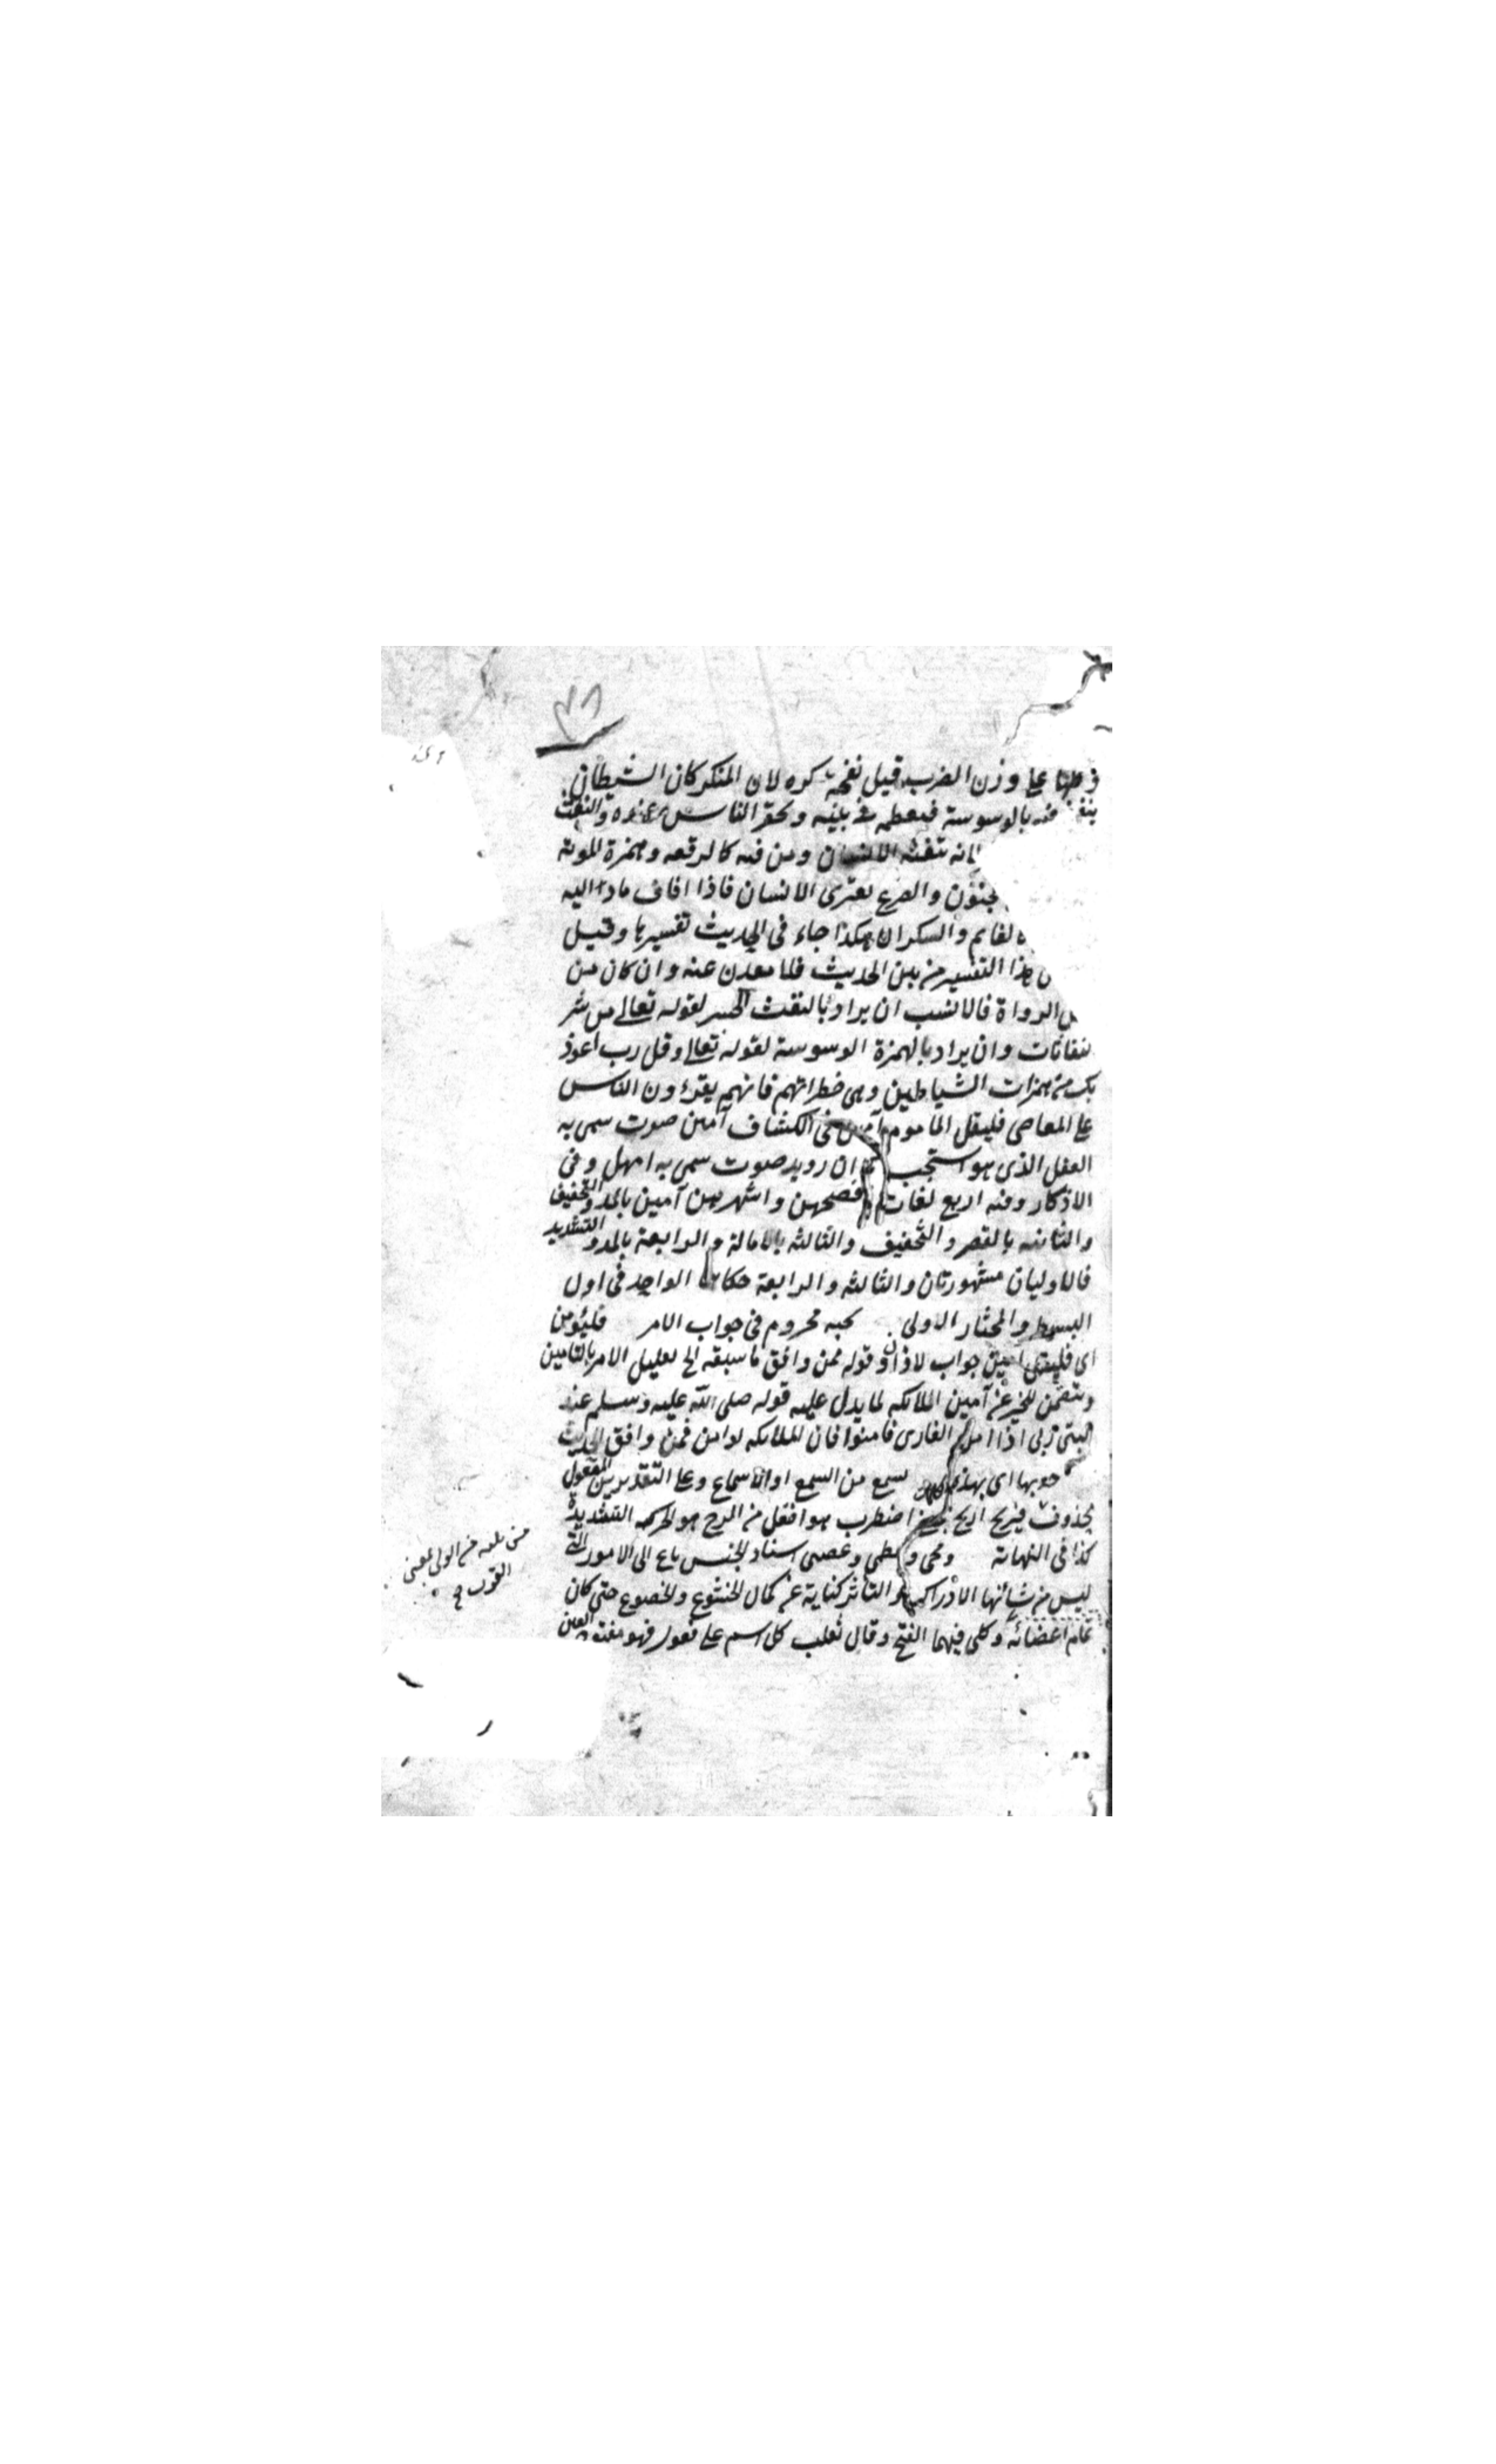 على وزن الضرب قيل نفخة كبره لان المتكبر كان الشيطان
فيه بالوسوسة فيعظمه في عينه ويحقر الناس عنده والنفث
كانه ينفثه الانسان من فيه كالرقيه وهمزة الموته
الجنون والصرع يعترى الانسان فاذا افاق عاد اليه
كالنايم والسكران هكذا جاء فى الحديث تفسيرها وقيل
ان هذا التفسير من بين الحديث فلا معدل عنه وان كان من
الرواة فالانسب ان يراد بالنفث السحر لقوله تعالى من شر
النفاثات وان يراد بالهمزة الوسوسة لقوله تعالى وقل رب اعوذ
بك من همزات الشياطين وهى خطراتهم فانهم يغرون الناس
على المعاصى فليقل الماموم آمين فى الكشاف آمين صوت سمى به
الفعل الذى هو استجب كما ان رويد صوت سمى به امهل وفى
الاذكار وفيه اربع لغات افصحهن واشهرهن آمين بالمد والتخفيف
والثانيه بالقصر والتخفيف والثالثه بالامالة والرابعة بالمد والتشديد
فالاوليان مشهورتان والثالثه والرابعة حكاها الواحدى فى اول
البسيط والمختار الاولى يحبه مجزوم فى جواب الامر فليؤمن
اى فليقل امين جواب لاذا وقوله فمن وافق ما سبقه الخ تعليل الامر بالتامين
ويتضمن الخبر عن آمين الملائكه لما يدل عليه قوله صلى الله عليه وسلم عند
اذا امن القارى فامنوا فان الملائكه تؤمن فمن وافق الحديث
اى بهذه يسمع من السمع او الاسماع وعلى التقديرين المفعول
محذوف فيرتج ارتج اضطرب هو افتعل من الرج هو الحركه الشديدة
كذا فى النهاية ومخى وعظمى وعصبى اسناد الخشوع الى الامور التى
ليس من شانها الادراك والتاثر كناية عن كمال الخشوع والخضوع حتى كان
تمام اعضائه وكلى فيهما الفتح وقال ثعلب كل اسم على فعول فهو مفتوح العين